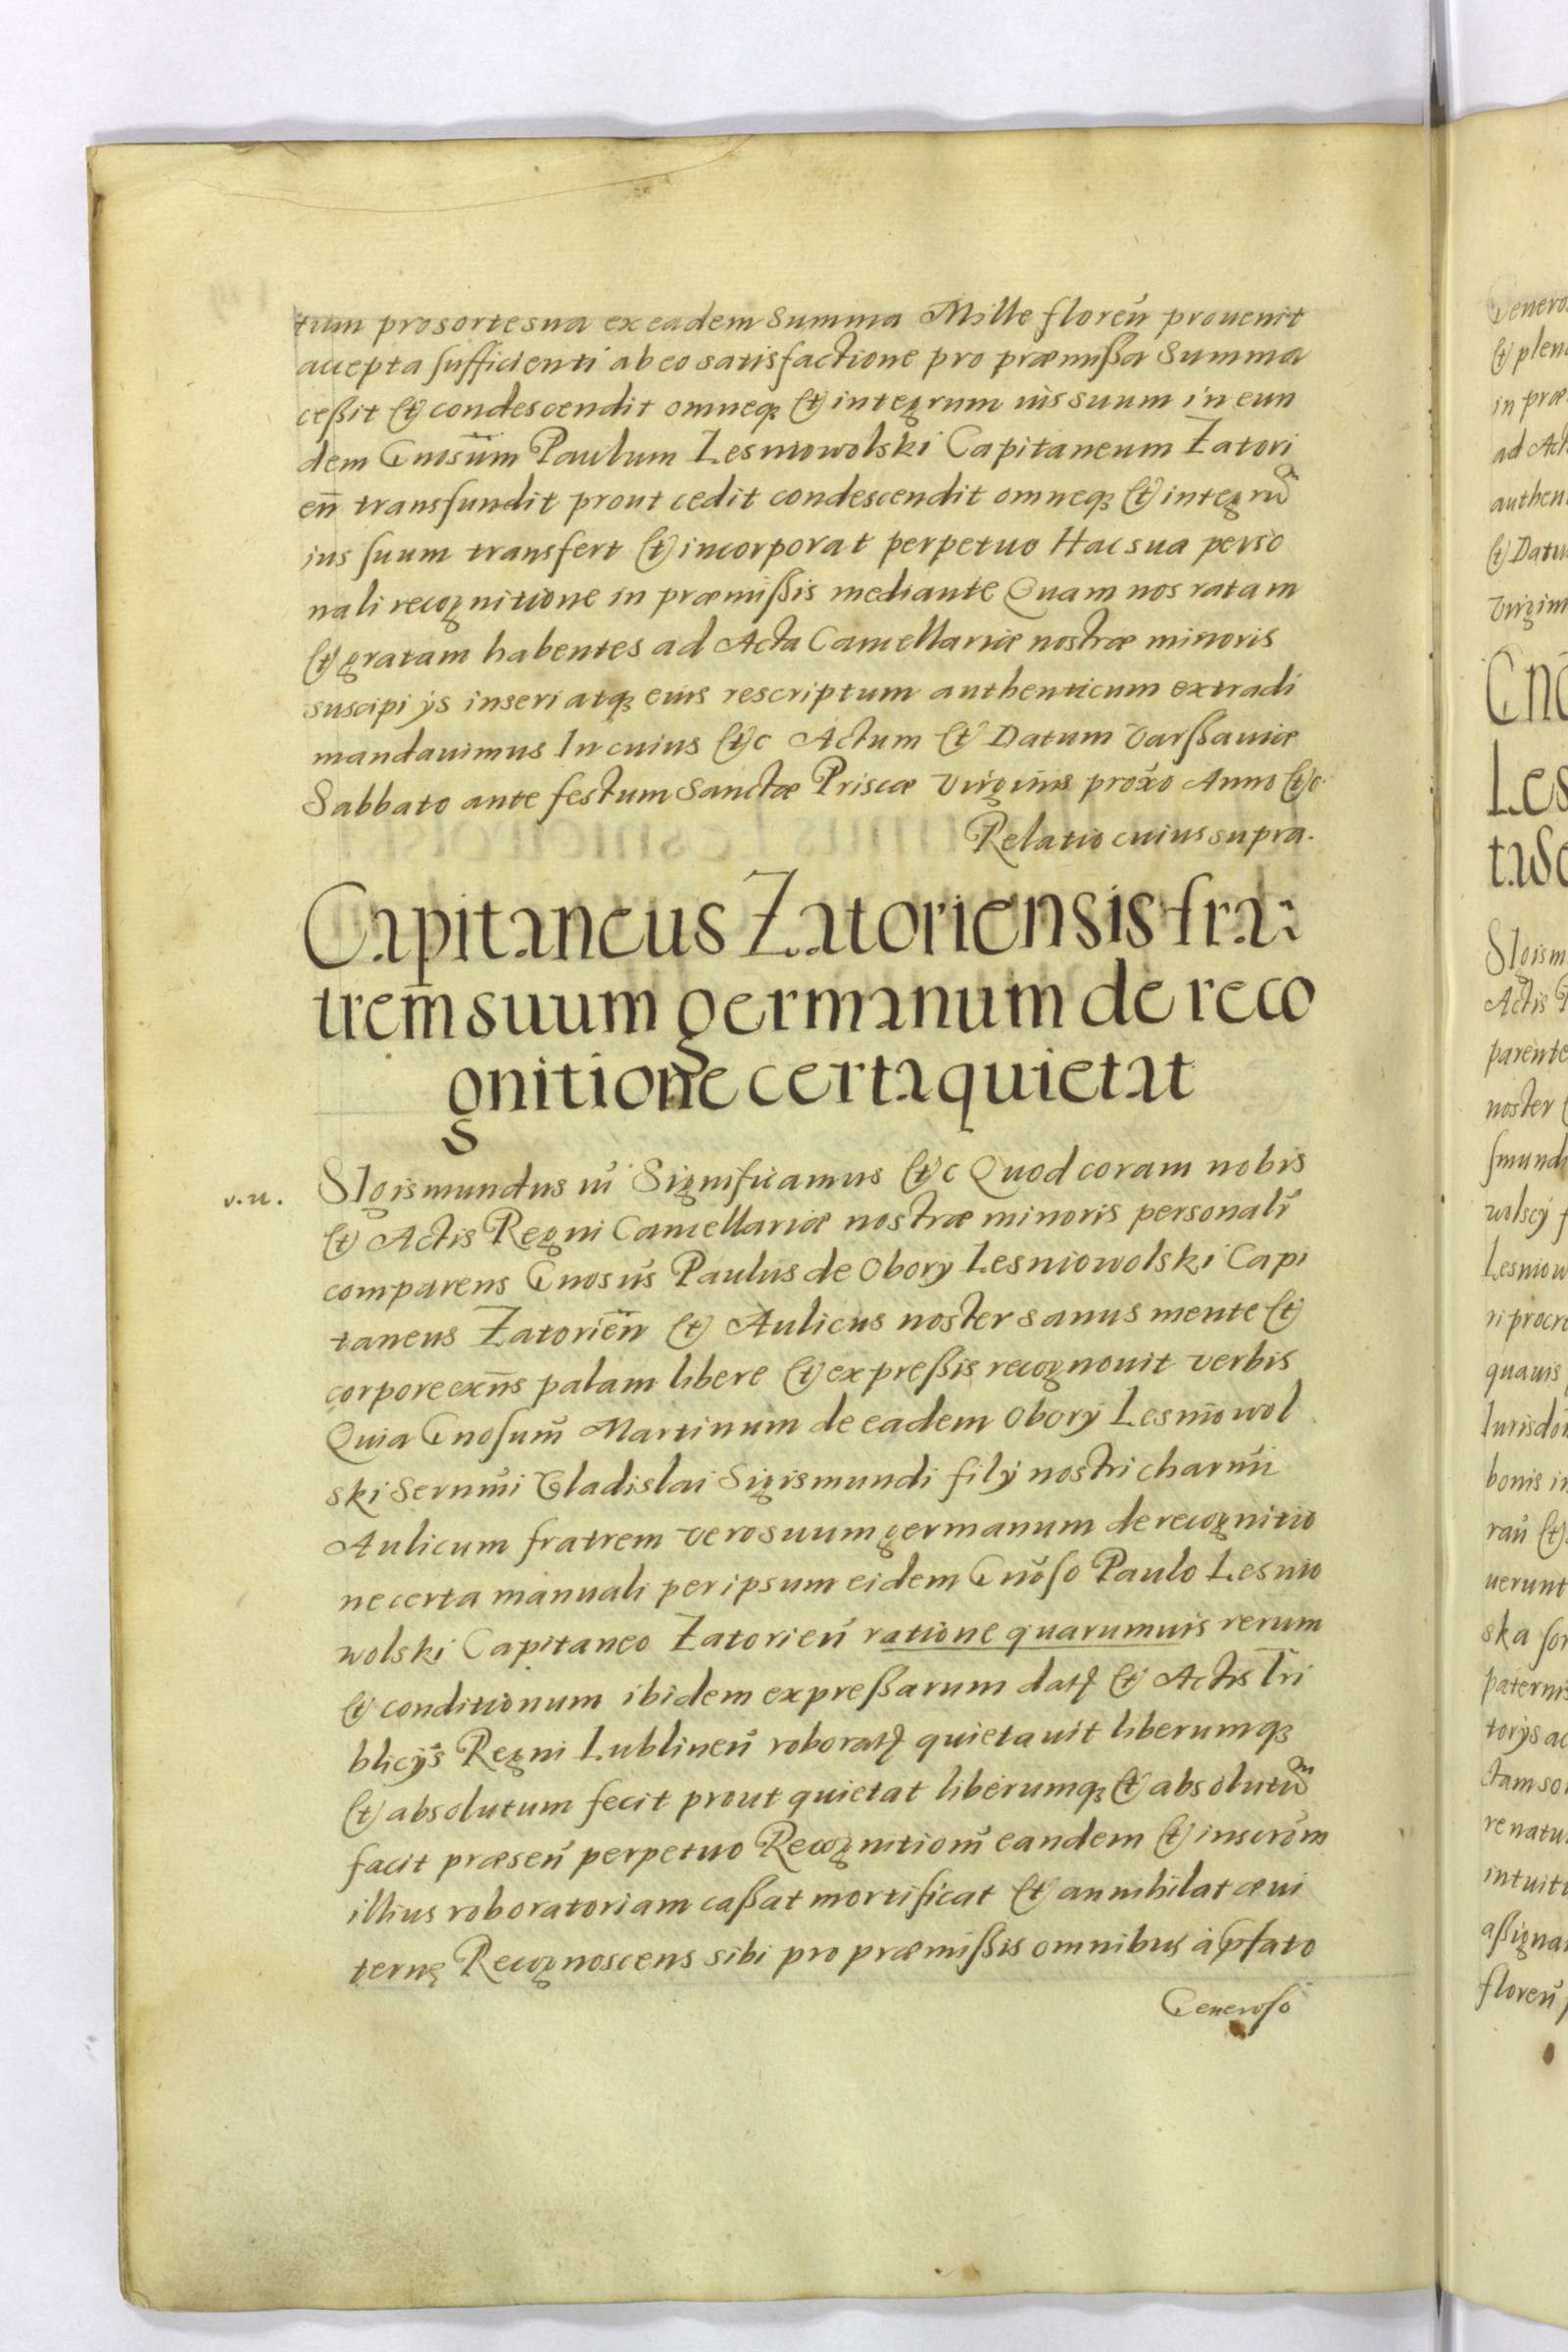 tum pro sorte sua ex eadem Summa Mille floreń prouenit
accepta sufficienti ab eo satisfactione pro præmißa Summa
ceßit et condescendit omneqȝ et integrum ius suum in eun
dem Gnosum̃ Paulum Lesniowolski Capitaneum Zatori
en̄ transfundit prout cedit condescendit omneqȝ et integrũ
ius suum transfert et incorporat perpetuo Hac sua perso
nali recognitione in præmißis mediante Quam nos ratam
et gratam habentes ad Acta Cancellariæ nostræ minoris
suscipi ijs inseri atqȝ eius rescriptum authenticum extradi
mandauimus In cuius etc Actum et Datum Varßauiæ
Sabbato ante festum Sanctæ Priscæ Virginis prox̃o Anno etc
Relatio cuius supra.
Capitaneus Zatoriensis fra:
trem suum germanum de reco
gnitione certa quietat
v.n.
SIgismundus iii Significamus etc Quod coram nobis
et Actis Regni Cancellariæ nostræ minoris personalr̃
comparens Gnosũs Paulus de Obory Lesniowolski Capi
taneus Zatorien̄ et Aulicus noster sanus mente et
corpore exñs palam libere et expreßis recognouit verbis
Quia Gnosum̃ Martinum de eadem Obory Lesniowol
ski Sernmi Vladislai Sigismundi filÿ nostri charmi
Aulicum fratrem vero suum germanum de recognitio
ne certa manuali per ipsum eidem Gnõso Paulo Lesnio
wolski Capitaneo Zatorień ratione quarumuis rerum
et conditionum ibidem expreßarum datę et Actis Tri
blicÿs Regni Lublineń roboratę quietauit liberumqȝ
et absolutum fecit prout quietat liberumqȝ et absolutũ
facit præseń perpetuo Recognitiom̃ eandem et inscrõm
illius roboratoriam caßat mortificat et annihilat æui
terne Recognoscens sibi pro præmißis omnibus à pfato
Generoso